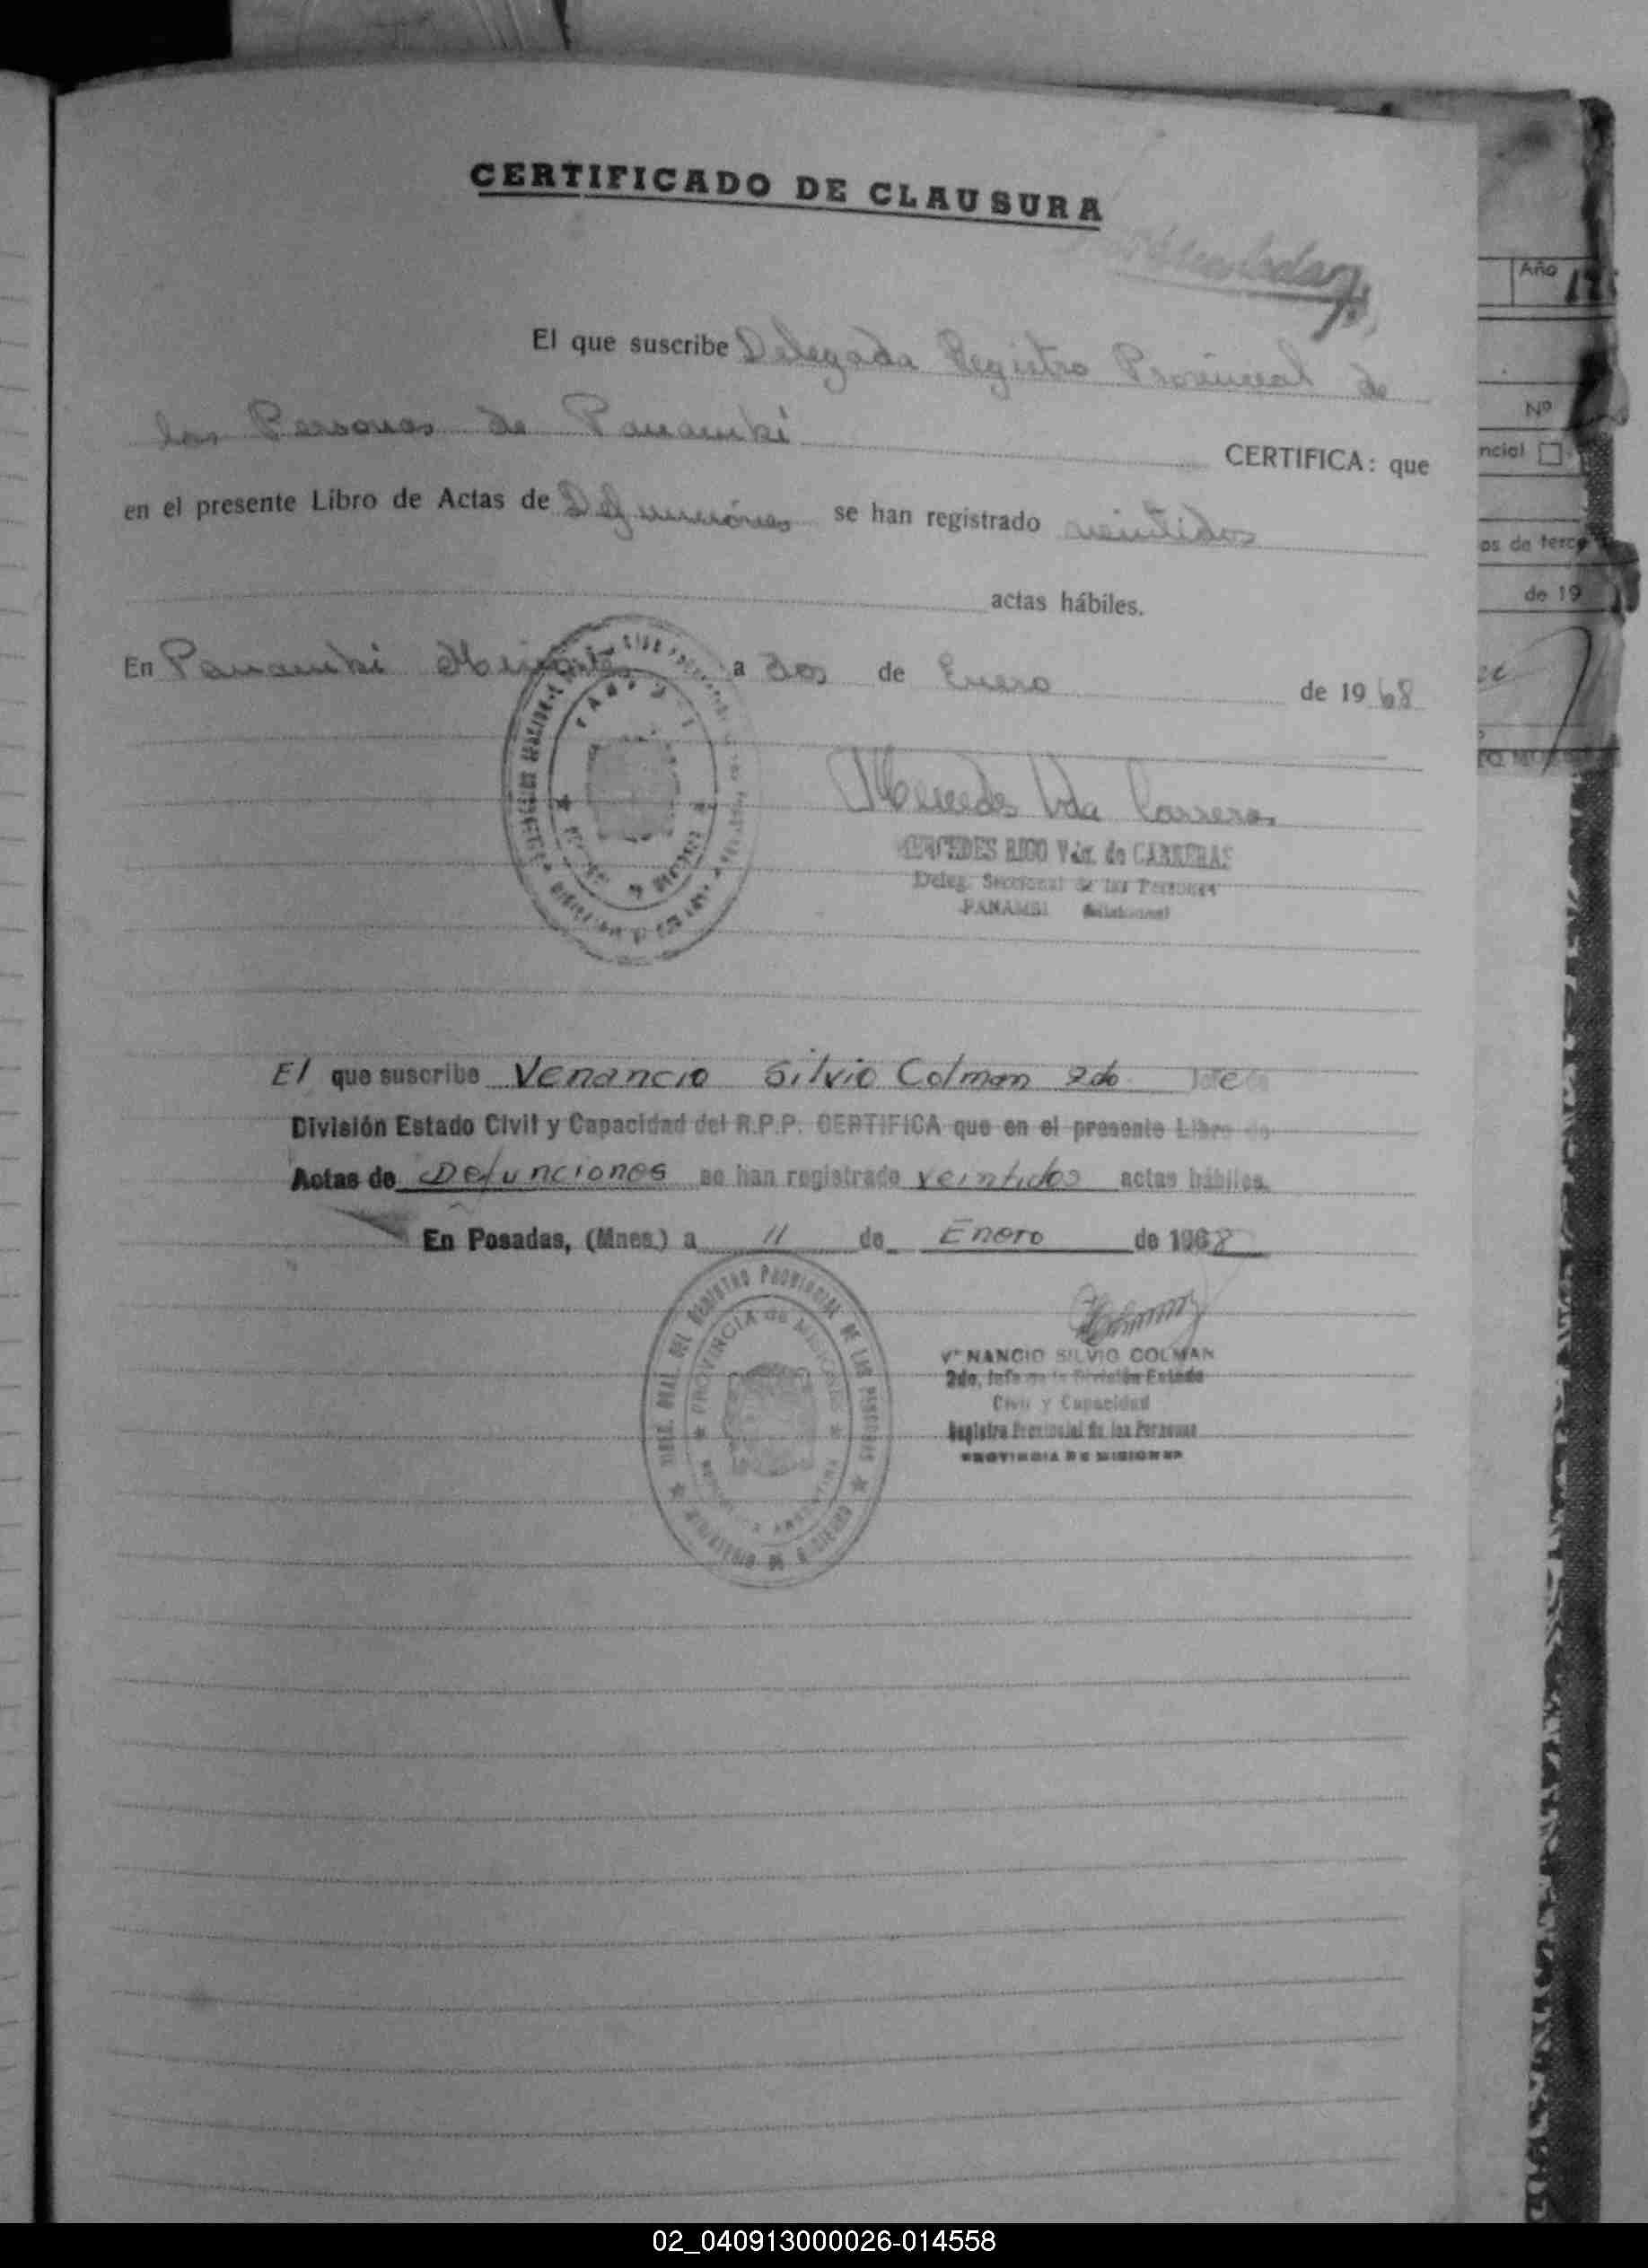 CERTIFICADO DE CLAUSURA
El que suscribe Delegada Registro Provincial de
las Personas de Panambí CERTIFICA: que
en el presente Libro de Actas de Defunciones se han registrado veintidos
actas hábiles.
En Panambí Misiones a Dos de Enero de 1968
Mercedes Vda Carreras
MERCEDES RICO Vda. de CARRERAS
Deleg. Seccional de las Personas
PANAMBI
El que suscribe Venancio Silvio Colman 2do Jefe
División Estado Civil y Capacidad del R.P.P. CERTIFICA que en el presente Libro de
Actas de Defunciones se han registrado veintidos actas hábiles.
En Posadas, (Mnes.) a 11 de Enero de 1968
DIREC. GRAL. DEL REGISTRO PROVINCIAL DE LAS PERSONAS
PROVINCIA de MISIONES
ARGENTINA
VENANCIO SILVIO COLMAN
2do. Jefe de la División Estado
Civil y Capacidad
Registro Provincial de las Personas
PROVINCIA DE MISIONES
Año
Nº
ncial
os de terce
de 19
02_040913000026-014558